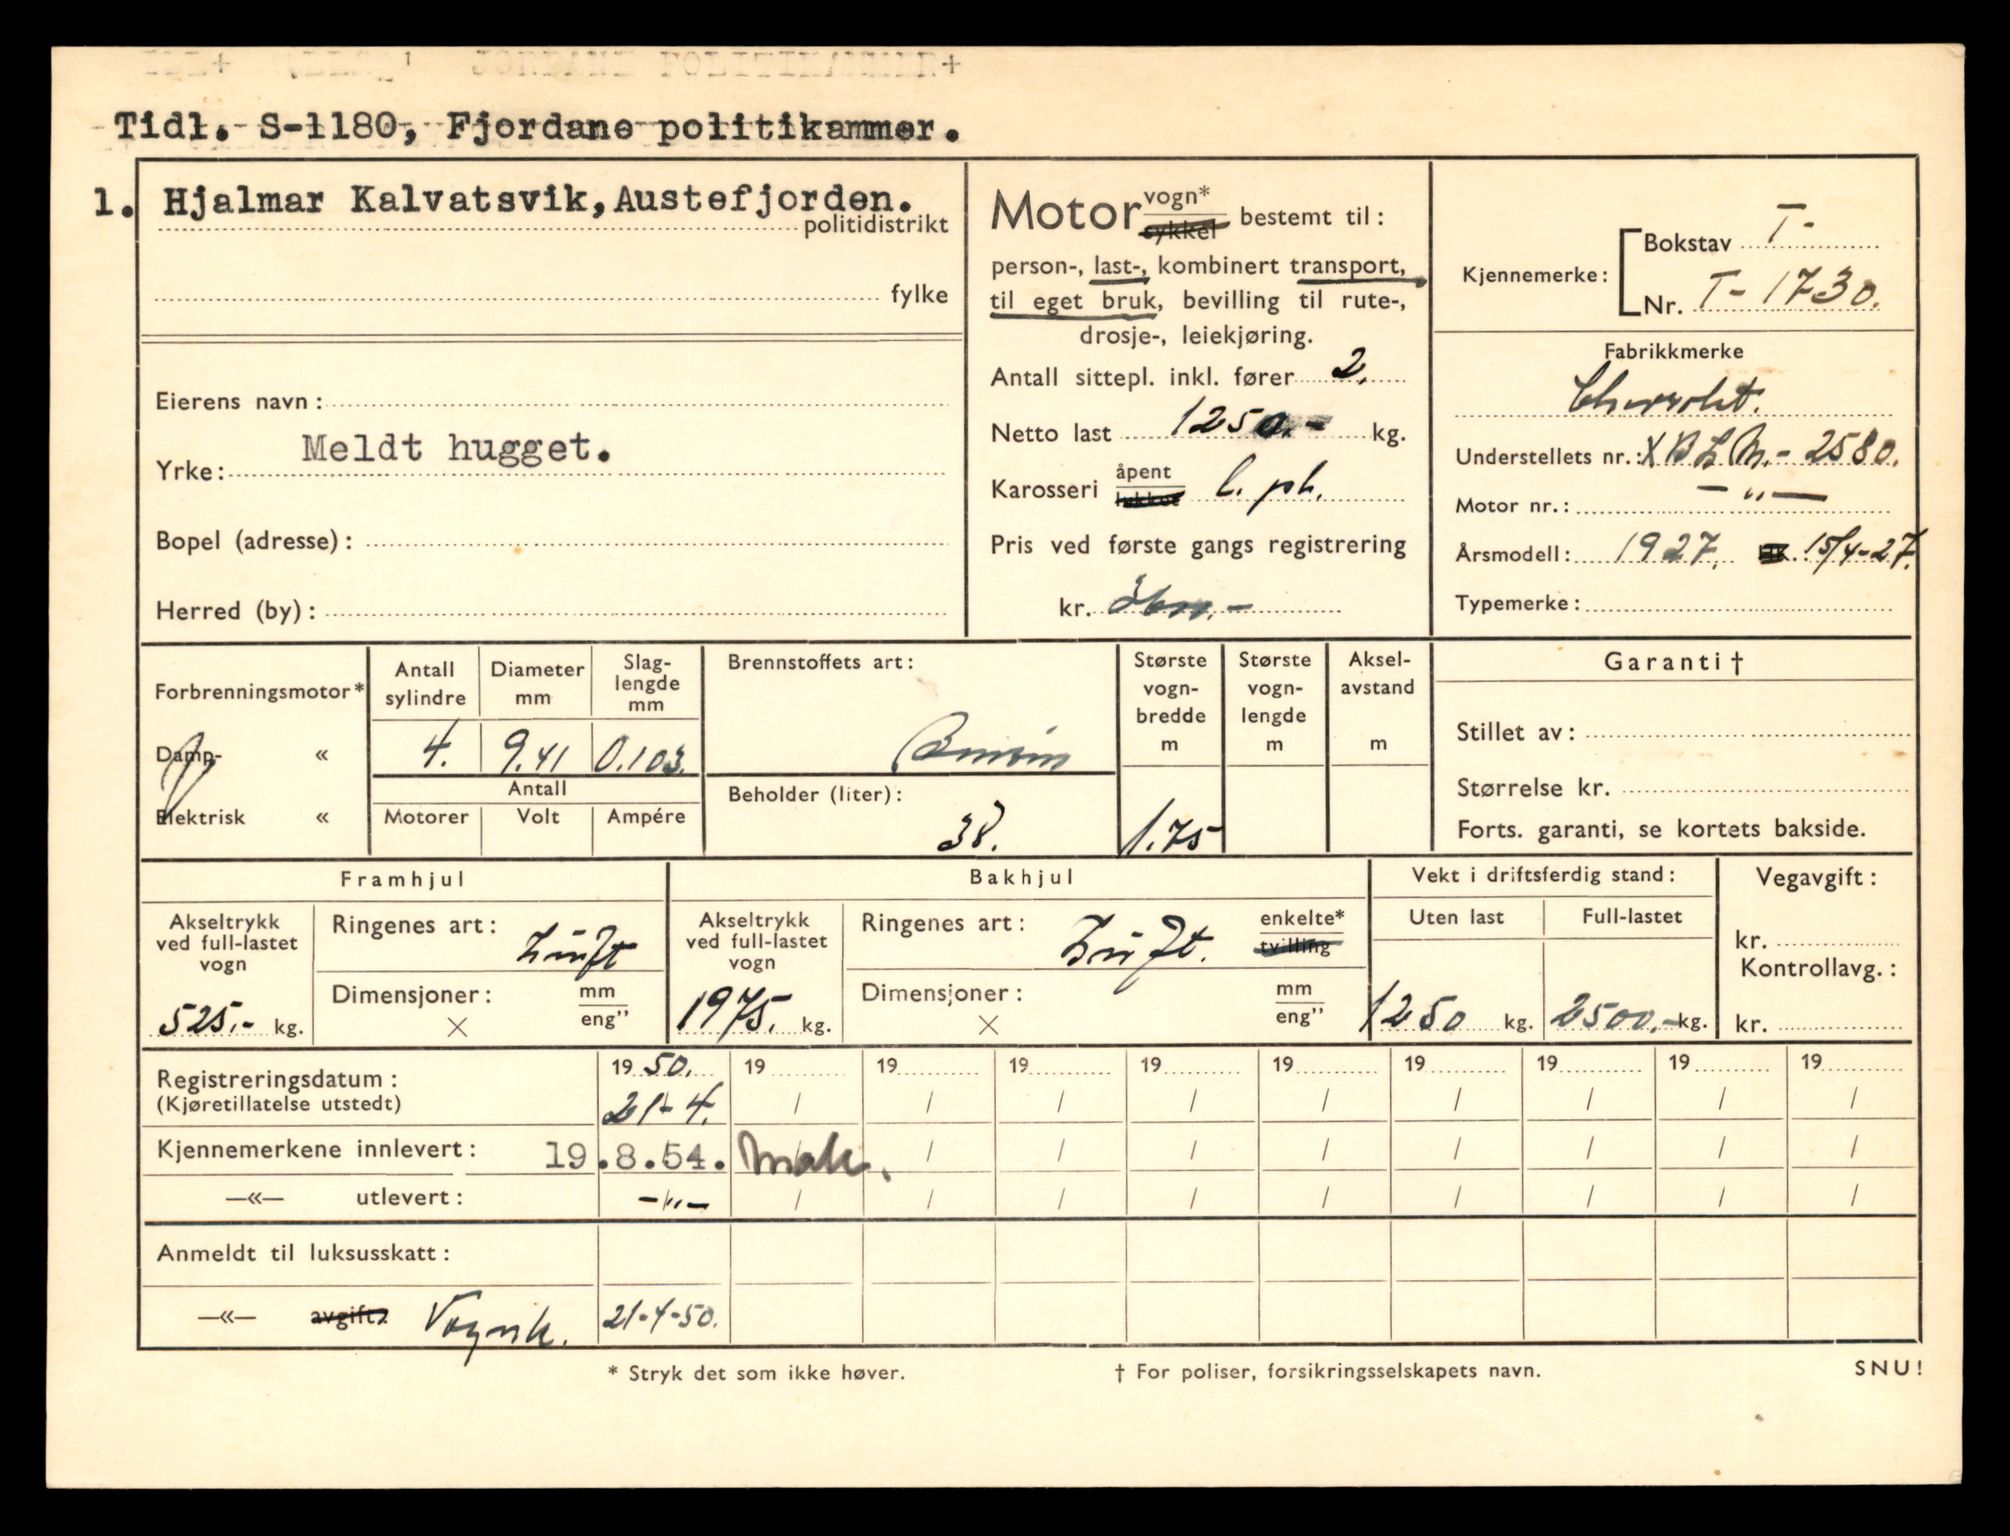 Tidl. S-1180, Fjordane politikammer.
1. Hjalmar Kalvatsvik, Austefjorden.
politidistrikt
fylke
Eierens navn:
Meldt hugget.
Yrke:
Bopel (adresse):
Herred (by):
Motor vogn* sykkel bestemt til:
person-, last-, kombinert transport,
til eget bruk, bevilling til rute-,
drosje-, leiekjøring.
Antall sittepl. inkl. fører 2.
Netto last 1250.- kg.
Karosseri åpent lukket l. pl.
Pris ved første gangs registrering
kr.
Kjennemerke: Bokstav T-
Nr. T-1730.
Fabrikkmerke
Chevrolet.
Understellets nr.: X B L M.- 2580.
Motor nr.: — " —
Årsmodell: 1927. 15/4-27.
Typemerke:
Forbrenningsmotor*
Damp- «
Elektrisk «
Antall sylindre
Diameter mm
Slag-lengde mm
4. 9.41 0.103.
Antall
Motorer Volt Ampére
Brennstoffets art:
Bensin
Beholder (liter):
38.
Største vogn-bredde m
1.75
Største vogn-lengde m
Aksel-avstand m
Garanti †
Stillet av:
Størrelse kr.
Forts. garanti, se kortets bakside.
Framhjul
Akseltrykk ved full-lastet vogn
525.- kg.
Ringenes art: Luft
Dimensjoner: mm eng"
×
Bakhjul
Akseltrykk ved full-lastet vogn
1975. kg.
Ringenes art: Luft. enkelte* tvilling
Dimensjoner: mm eng"
×
Vekt i driftsferdig stand:
Uten last Full-lastet
1250 kg. 2500.- kg.
Vegavgift:
kr.
Kontrollavg.:
kr.
19 50. 19 19 19 19 19 19 19 19 19
Registreringsdatum:
(Kjøretillatelse utstedt) 21-4. / / / / / / / / /
Kjennemerkene innlevert: 19.8.54. mak. / / / / / / / /
—«— utlevert: -"- / / / / / / / / /
Anmeldt til luksusskatt:
—«— avgift: Vognk. 21-4-50.
* Stryk det som ikke høver.
† For poliser, forsikringsselskapets navn.
SNU!